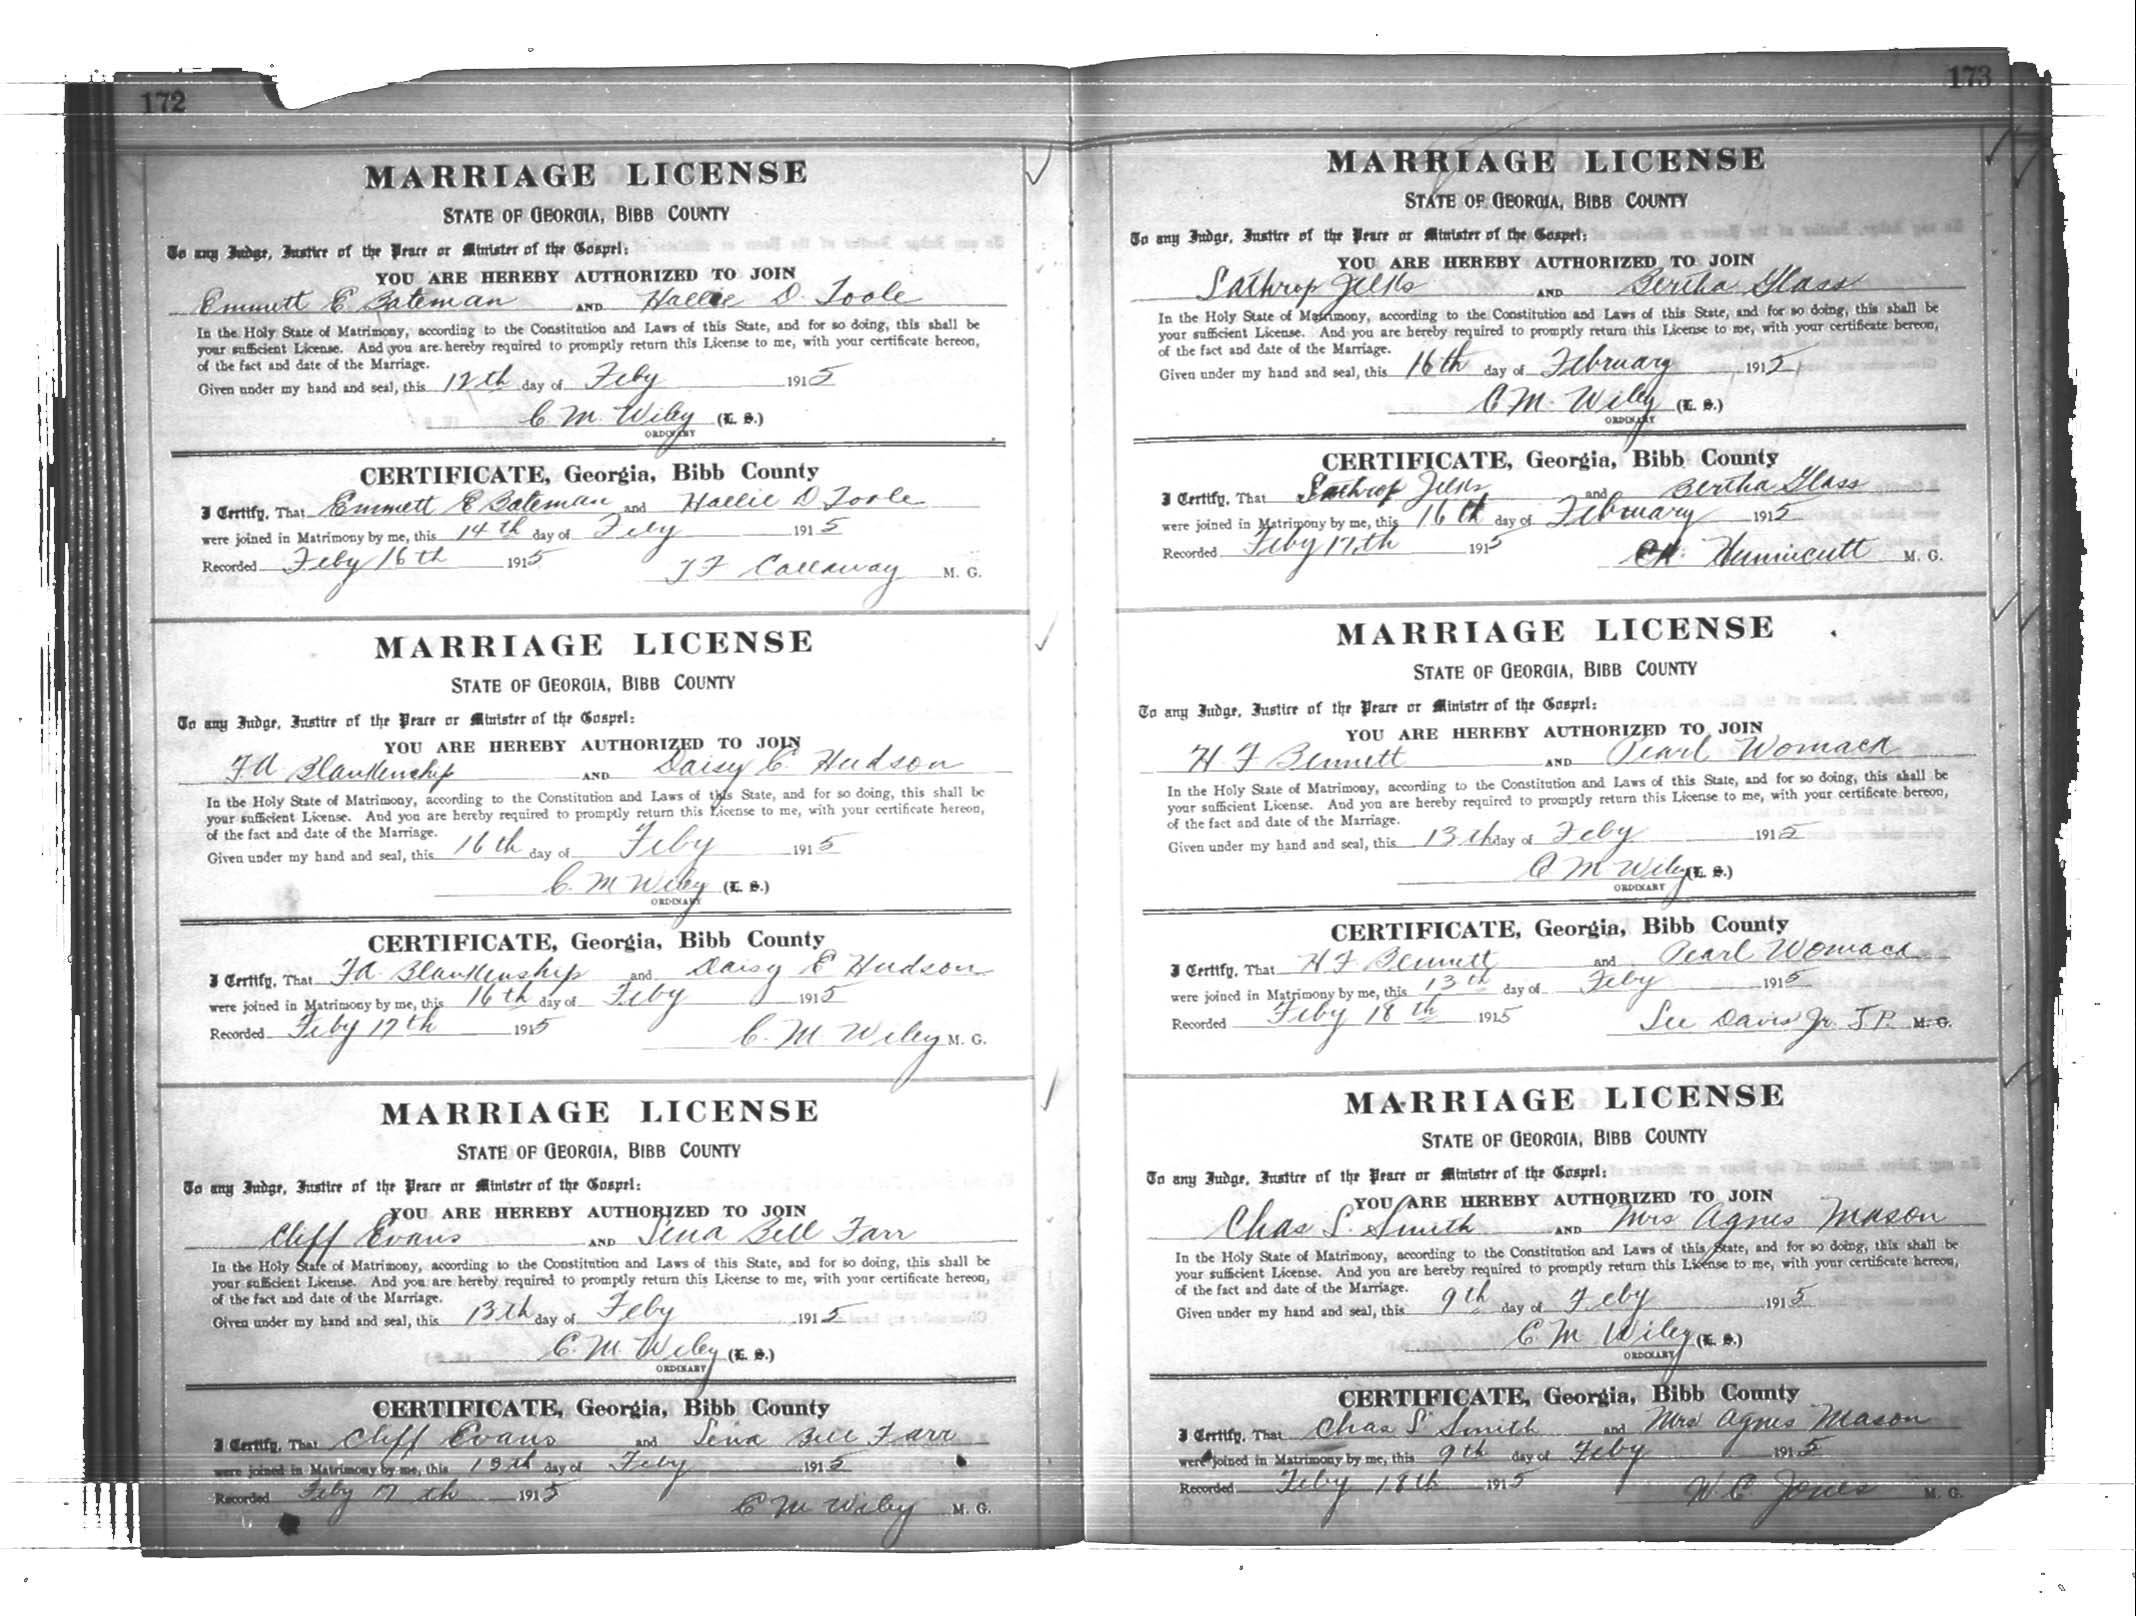 172
MARRIAGE LICENSE
STATE OF GEORGIA, BIBB COUNTY
To any Judge, Justice of the Peace or Minister of the Gospel:
YOU ARE HEREBY AUTHORIZED TO JOIN
Emmett E Bateman AND Hallie D. Toole
In the Holy State of Matrimony, according to the Constitution and Laws of this State, and for so doing, this shall be
your sufficient License. And you are hereby required to promptly return this License to me, with your certificate hereon,
of the fact and date of the Marriage.
Given under my hand and seal, this 12th day of Feby 1915
C. M. Wiley (L. S.)
ORDINARY
CERTIFICATE, Georgia, Bibb County
I Certify, That Emmett E Bateman and Hallie D Toole
were joined in Matrimony by me, this 14th day of Feby 1915
Recorded Feby 16th 1915 T F Callaway M. G.
MARRIAGE LICENSE
STATE OF GEORGIA, BIBB COUNTY
To any Judge, Justice of the Peace or Minister of the Gospel:
YOU ARE HEREBY AUTHORIZED TO JOIN
F A Blankenship AND Daisy E Hudson
In the Holy State of Matrimony, according to the Constitution and Laws of this State, and for so doing, this shall be
your sufficient License. And you are hereby required to promptly return this License to me, with your certificate hereon,
of the fact and date of the Marriage.
Given under my hand and seal, this 16th day of Feby 1915
C. M Wiley (L. S.)
ORDINARY
CERTIFICATE, Georgia, Bibb County
I Certify, That F A Blankenship and Daisy E Hudson
were joined in Matrimony by me, this 16th day of Feby 1915
Recorded Feby 17th 1915 C. M Wiley M. G.
MARRIAGE LICENSE
STATE OF GEORGIA, BIBB COUNTY
To any Judge, Justice of the Peace or Minister of the Gospel:
YOU ARE HEREBY AUTHORIZED TO JOIN
Cliff Evans AND Lena Bell Farr
In the Holy State of Matrimony, according to the Constitution and Laws of this State, and for so doing, this shall be
your sufficient License. And you are hereby required to promptly return this License to me, with your certificate hereon,
of the fact and date of the Marriage.
Given under my hand and seal, this 13th day of Feby 1915
C. M. Wiley (L. S.)
ORDINARY
CERTIFICATE, Georgia, Bibb County
I Certify, That Cliff Evans and Lena Bell Farr
were joined in Matrimony by me, this 13th day of Feby 1915
Recorded Feby 17th 1915 C M Wiley M. G.
173
MARRIAGE LICENSE
STATE OF GEORGIA, BIBB COUNTY
To any Judge, Justice of the Peace or Minister of the Gospel:
YOU ARE HEREBY AUTHORIZED TO JOIN
Lathrop Jelks AND Bertha Glass
In the Holy State of Matrimony, according to the Constitution and Laws of this State, and for so doing, this shall be
your sufficient License. And you are hereby required to promptly return this License to me, with your certificate hereon,
of the fact and date of the Marriage.
Given under my hand and seal, this 16th day of February 1915
C M. Wiley (L. S.)
ORDINARY
CERTIFICATE, Georgia, Bibb County
I Certify, That Lathrop Jelks and Bertha Glass
were joined in Matrimony by me, this 16th day of February 1915
Recorded Feby 17th 1915 Hunnicutt M. G.
MARRIAGE LICENSE
STATE OF GEORGIA, BIBB COUNTY
To any Judge, Justice of the Peace or Minister of the Gospel:
YOU ARE HEREBY AUTHORIZED TO JOIN
H. F Bennett AND Pearl Womack
In the Holy State of Matrimony, according to the Constitution and Laws of this State, and for so doing, this shall be
your sufficient License. And you are hereby required to promptly return this License to me, with your certificate hereon,
of the fact and date of the Marriage.
Given under my hand and seal, this 13th day of Feby 1915
C M Wiley (L. S.)
ORDINARY
CERTIFICATE, Georgia, Bibb County
I Certify, That H F Bennett and Pearl Womack
were joined in Matrimony by me, this 13th day of Feby 1915
Recorded Feby 18th 1915 Lee Davis Jr. J P. M. G.
MARRIAGE LICENSE
STATE OF GEORGIA, BIBB COUNTY
To any Judge, Justice of the Peace or Minister of the Gospel:
YOU ARE HEREBY AUTHORIZED TO JOIN
Chas L. Smith AND Mrs Agnes Mason
In the Holy State of Matrimony, according to the Constitution and Laws of this State, and for so doing, this shall be
your sufficient License. And you are hereby required to promptly return this License to me, with your certificate hereon,
of the fact and date of the Marriage.
Given under my hand and seal, this 9th day of Feby 1915
C. M Wiley (L. S.)
ORDINARY
CERTIFICATE, Georgia, Bibb County
I Certify, That Chas L Smith and Mrs Agnes Mason
were joined in Matrimony by me, this 9th day of Feby 1915
Recorded Feby 18th 1915 W. C Jones M. G.